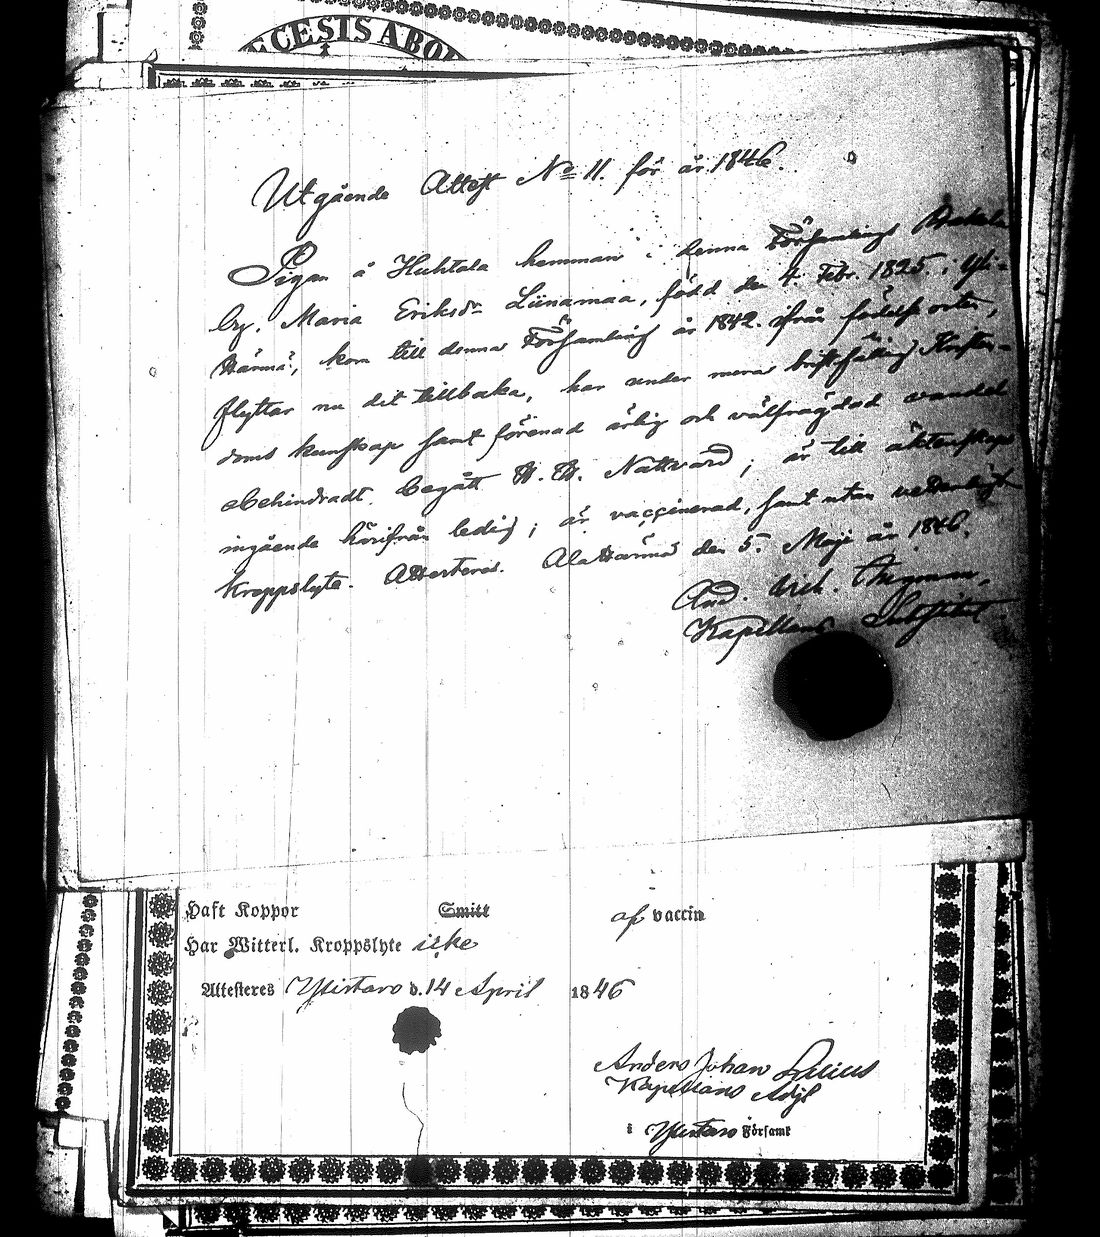 ECESIS ABO
Utgående Attest No 11. för år 1846.
Pigan å Huhtala hemman i denna Församlings
by, Maria Eriksdr Liinamaa, född den 4. Febr. 1825. i Yli-
Härmä, kom till denna Församling år 1842. ifrån födelse orten,
flyttar nu dit tillbaka, har under mera Kristen-
doms kunskap samt förenad ärlig och välfrägdad vandel
obehindradt begått H. H. Nattvard; är till äktenskaps
ingående härifrån ledig; är vaccinerad, samt utan vederligt
kroppslyte. Attesteras. Ala Härmä den 5. Maji år 1846.
And. Wilh.
Kapellans Substitut
Haft Koppor Smitt af vaccin
Har Witterl. Kroppslyte icke
Attesteres Ylistaro d. 14 April 1846
Anders Johan
Kapellans Adj
i Ylistaro Församl